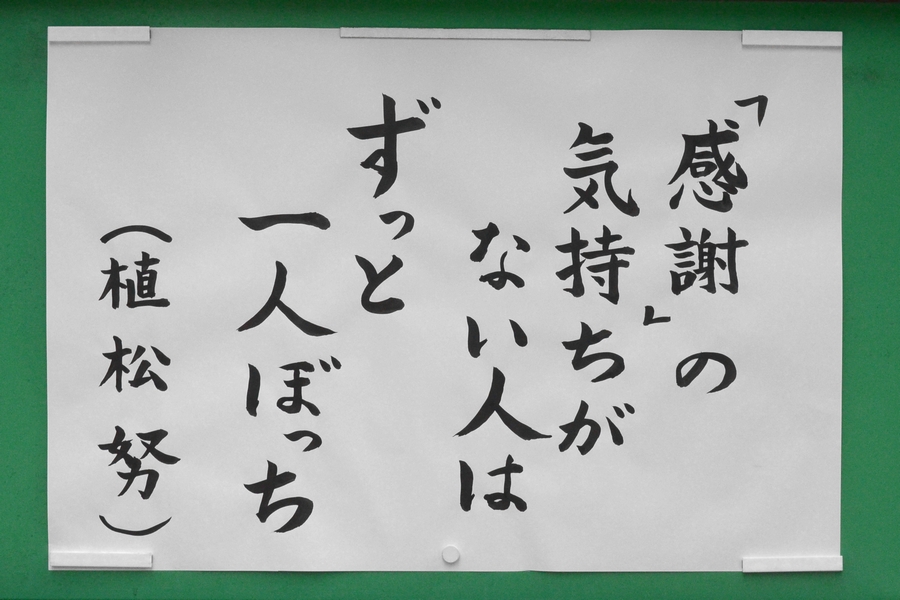 「感謝」の
気持ちが
ない人は
ずっと
一人ぼっち
（植松努）